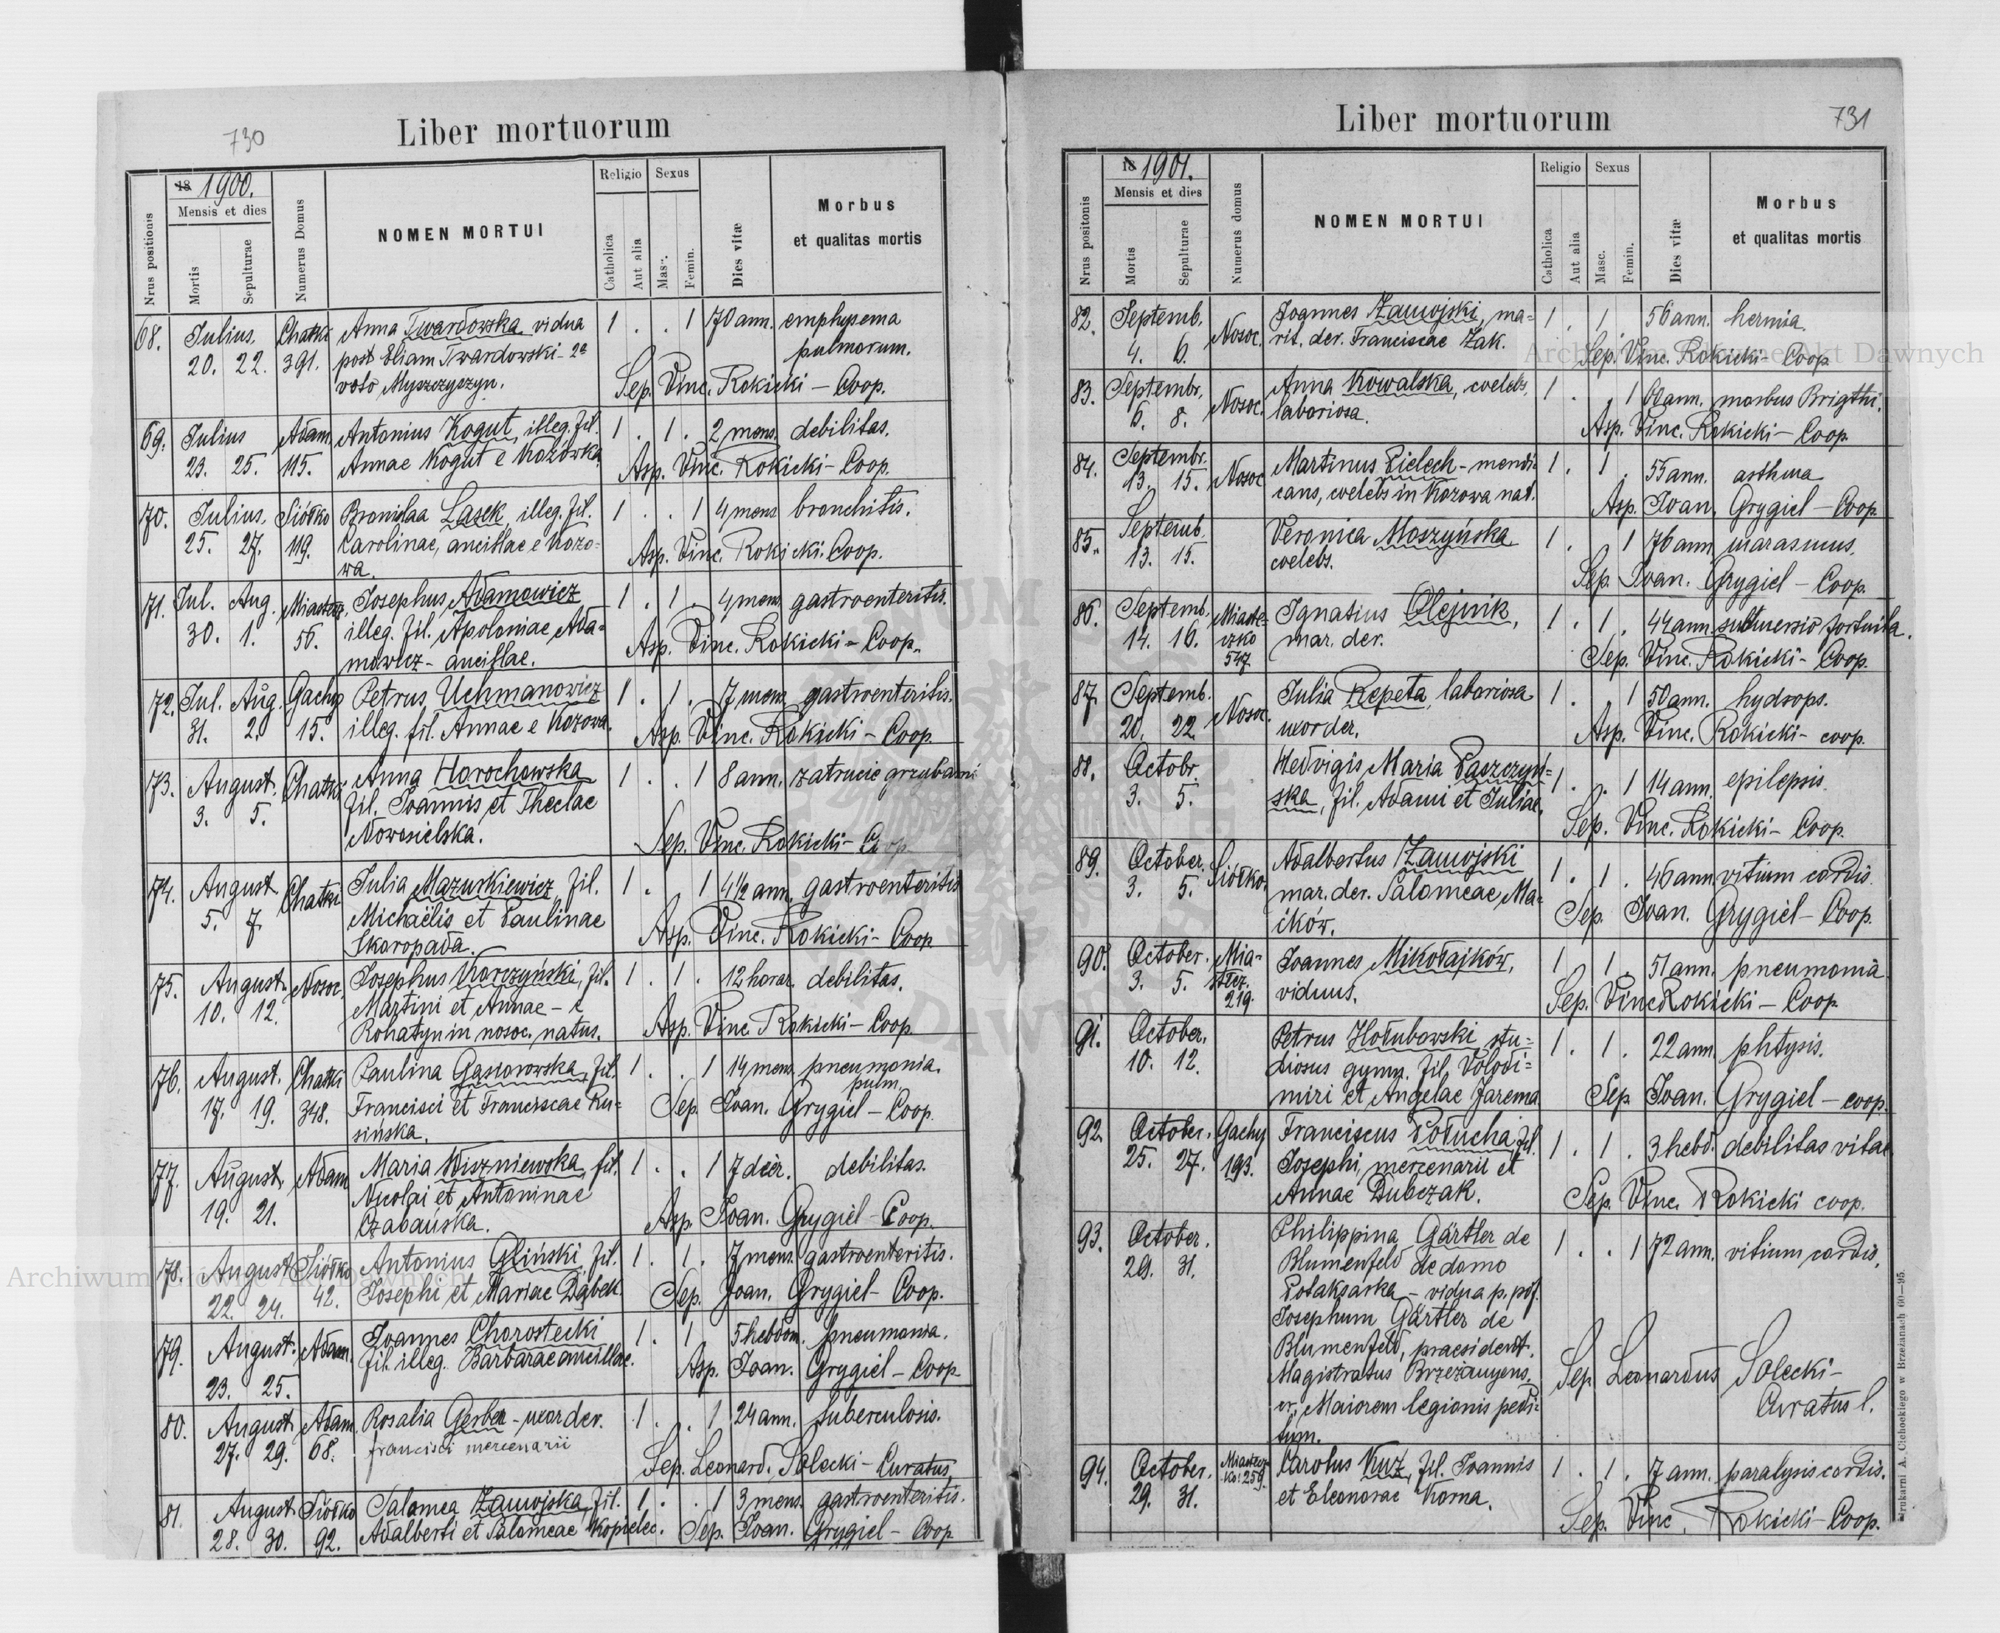 730
Liber mortuorum
Nrus positionis
18 1900.
Mensis et dies
Mortis
Sepulturae
Numerus Domus
NOMEN MORTUI
Religio
Catholica
Aut alia
Sexus
Masc.
Femin.
Dies vitæ
Morbus
et qualitas mortis
68. Julius. Chatki Anna Twardowska vidua 1 . . 1 70 ann. emphysema
20. 22. 391. post Eliam Twardowski - 2o pulmorum.
voto Myszczyszyn. Sep. Vinc. Rokicki - Coop.
69. Julius Adam. Antonius Kogut, illeg. fil. 1 . 1 . 2 mens. debilitas.
23. 25. 115. Annae Kogut e Kozówka. Asp. Vinc. Rokicki - Coop.
70. Julius. Siółko Bronislaa Lasek, illeg. fil. 1 . . 1 4 mens bronchitis.
25. 27. 119. Carolinae, ancillae e Kozo- Asp. Vinc. Rokicki. Coop.
wa.
71. Jul. Aug. Miastecz. Josephus Adamowicz 1 . 1 . 4 mens gastroenteritis.
30. 1. 56. illeg. fil. Apoloniae Ada- Asp. Vinc. Rokicki - Coop.
mowicz - ancillae.
72. Jul. Aug. Gachy Petrus Uchmanowicz 1 . 1 . 7 mens. gastroenteritis.
31. 2. 15. illeg. fil. Annae e Kozowa. Asp. Vinc. Rokicki - Coop.
73. August. Chatki Anna Horochowska 1 . . 1 8 ann. zatrucie grzybami
3. 5. fil. Joannis et Theclae
Nowosielska. Sep. Vinc. Rokicki - Coop
74. August. Chatki Julia Mazurkiewicz fil. 1 . . 1 4 1/2 ann. gastroenteritis
5. 7. Michaëlis et Paulinae
Skoropada. Asp. Vinc. Rokicki - Coop
75. August. Nosoc. Josephus Korczyński, fil. 1 . 1 . 12 horar. debilitas.
10. 12. Martini et Annae - e
Rohatyn in nosoc. natus. Asp. Vinc. Rokicki - Coop
76. August. Chatki Paulina Gąsiorowska, fil. 1 . . 1 14 mens. pneumonia.
pulm.
17. 19. 348. Francisci et Franciscae Ru- Sep. Joan. Grygiel - Coop.
sińska.
77. August. Adam Maria Wiszniewska, fil. 1 . . 1 7 dier. debilitas.
19. 21. Nicolai et Antoninae
Czabańska. Asp. Joan. Grygiel - Coop.
78. August Siółko Antonius Gliński, fil. 1 . 1 . 7 mens. gastroenteritis.
22. 24. 42. Josephi et Mariae Dąbek. Sep. Joan. Grygiel - Coop.
79. August. Adam. Joannes Chorostecki 1 . 1 5 hebdom. pneumonia.
23. 25. fil. illeg. Barbarae ancillae. Asp. Joan. Grygiel - Coop
80. August. Adam. Rosalia Gerber - uxor der. 1 . . 1 24 ann. tuberculosis.
27. 29. 68. francisci mercenarii
Sep. Leonard. Solecki - Curatus.
81. August. Siółko Salomea Zamojska, fil. 1 . . 1 3 mens. gastroenteritis.
28. 30. 92. Adalberti et Salomeae Kopielec. Sep. Joan. Grygiel - Coop
Liber mortuorum
731
Nrus positonis
18 1901.
Mensis et dies
Mortis
Sepulturae
Numerus domus
NOMEN MORTUI
Religio
Catholica
Aut alia
Sexus
Masc.
Femin.
Dies vitæ
Morbus
et qualitas mortis
82. Septemb. Nosoc. Joannes Zamojski, ma- 1 . 1 . 56 ann. hernia.
4. 6. rit. der. Franciscae Żak. Sep. Vinc. Rokicki - Coop
83. Septembr. Nosoc. Anna Kowalska, coelebs, 1 . 1 60 ann. morbus Brigthi.
6. 8. laboriosa. Asp. Vinc. Rokicki - Coop
84. Septembr. Nosoc Martinus Pielech - mendi- 1 . 1 . 55 ann. asthma
13. 15. cans, coelebs in Kozowa nat. Asp. Joan. Grygiel - Coop
85. Septemb. Veronica Moszyńska 1 . 1 76 ann. marasmus.
13. 15. coelebs. Sep. Joan. Grygiel - Coop.
86. Septemb. Miaste- Ignatius Olejnik, 1 . 1 . 44 ann. submersio fortuita.
14. 16. czko mar. der.
547. Sep. Vinc. Rokicki - Coop.
87. Septemb. Nosoc. Julia Repeta, laboriosa 1 . 1 50 ann. hydrops.
20. 22. uxor der. Asp. Vinc. Rokicki - coop.
88. Octobr. Hedvigis Maria Paszczyń- 1 . . 1 14 ann. epilepsis.
3. 5. ska, fil. Adami et Juliae. Sep. Vinc. Rokicki - Coop.
89. October. Siółko. Adalbertus Zamojski 1 . 1 . 46 ann. vitium cordis.
3. 5. mar. der. Salomeae Ma- Sep. Joan. Grygiel - Coop.
ików.
90. October. Mia- Joannes Mikołajków, 1 1 . 51 ann. pneumonia
3. 5. stecz. viduus. Sep. Vinc Rokicki - Coop
219.
91. October. Petrus Hołubowski stu- 1 . 1 . 22 ann. phtysis.
10. 12. diosus gymn. fil. Volodi-
miri et Angelae Jarema Sep Joan. Grygiel - coop.
92. October. Gachy Franciscus Połucha, fil. 1 . 1 . 3 hebd. debilitas vitae
25. 27. 193. Josephi, mercenarii et
Annae Dubczak. Sep. Vinc. Rokicki coop.
93. October. Philippina Gärtler de 1 . . 1 72 ann. vitium cordis.
29. 31. Blumenfeld de domo
Potaksarka - vidua p. pof.
Josephum Gärtler de
Blumenfeld, praesident.
Magistratus Brzeżanyens. Sep Leonardus Solecki -
er. Maiorem legionis pedi- Curatus l.
tum.
94. October. Miastecz- Carolus Kurz, fil. Joannis 1 . 1 . 7 ann. paralysis cordis.
29. 31. ko: 259. et Eleonorae Korna. Sep. Vinc. Rokicki - Coop.
Drukarni A. Cichockiego w Brzeżanach 60—95.